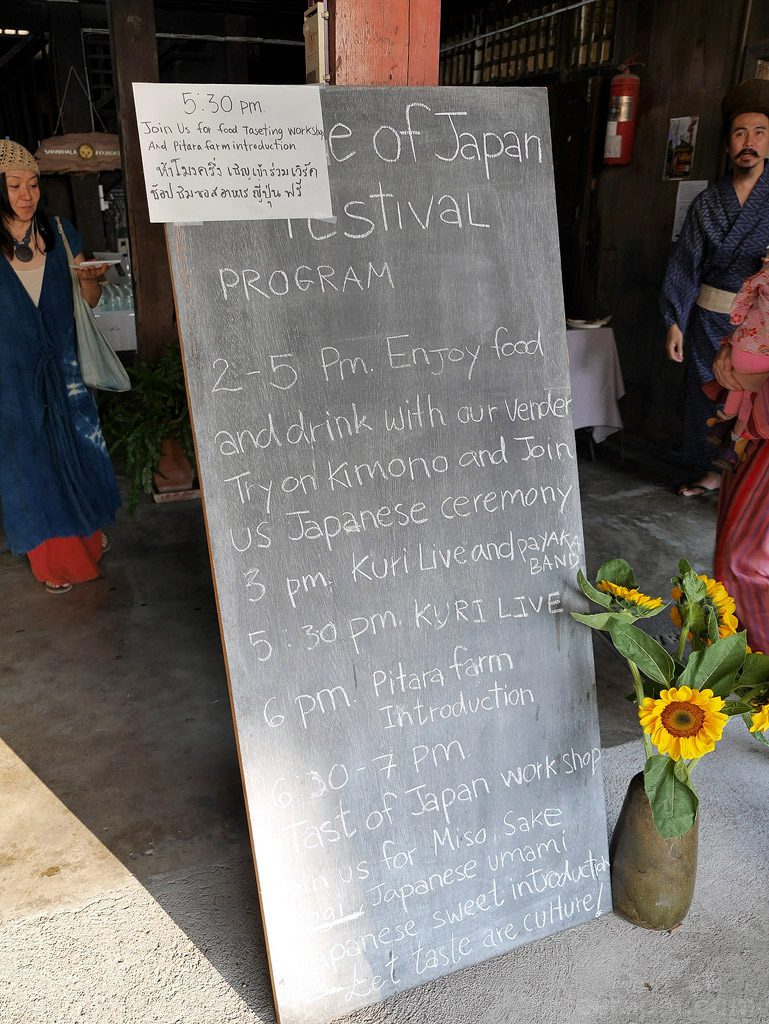 5:30 pm.
Join Us for food Taseting workshop
And Pitara farm introduction.
ห้าโมงครึ่ง เชิญเข้าร่วมเวิร์ค
ช้อป ชิมซอสอาหารญี่ปุ่น ฟรี
e of Japan
festival
PROGRAM
2-5 Pm. Enjoy food
and drink with our vender
Try on Kimono and Join
us Japanese ceremony
3 pm. Kuri Live and PAYAKA
BAND
5.30 pm. KURI LIVE
6 pm. Pitara farm
Introduction
6:30-7 pm
Tast of Japan workshop
Join us for Miso, Sake
Japanese umami
Japanese sweet introduction
Let taste are culture!
SHAMBHALA